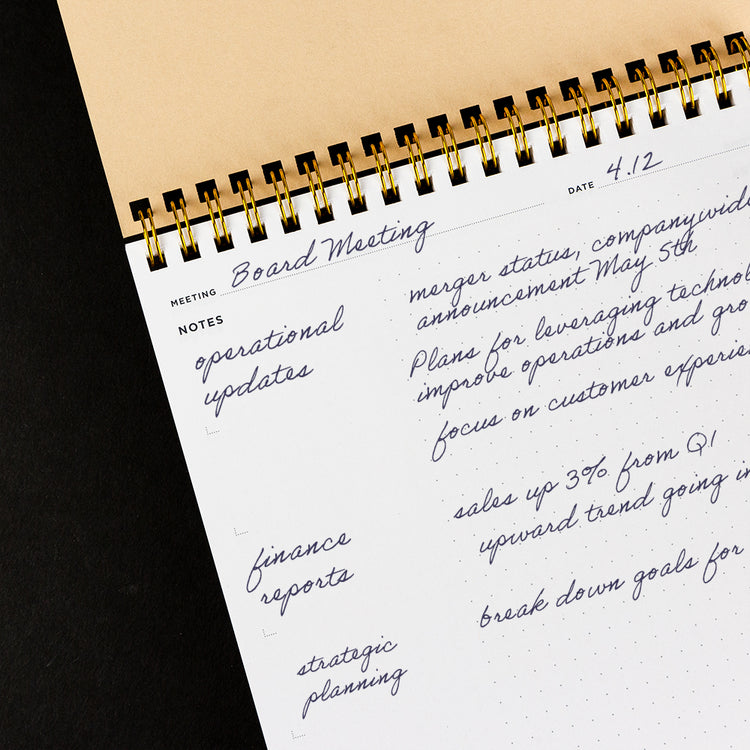 MEETING Board Meeting DATE 4.12
NOTES
operational
updates
merger status, companywide
announcement May 5th
Plans for leveraging
improve operations and
focus on customer
finance
reports
sales up 3% from Q1
upward trend going
strategic
planning
break down goals for